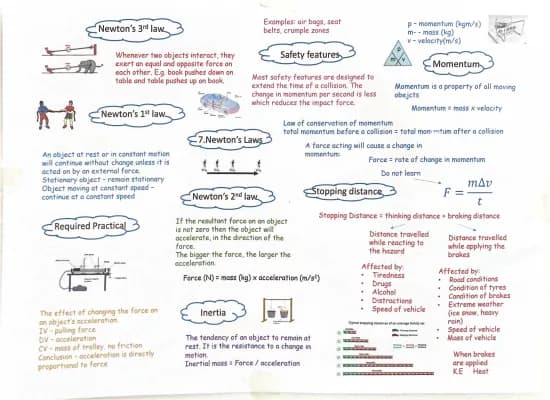 Newton's 3rd law
Whenever two objects interact, they
exert an equal and opposite force on
each other. E.g. book pushes down on
table and table pushes up on book.
Newton's 1st law
An object at rest or in constant motion
will continue without change unless it is
acted on by an external force.
Stationary object – remain stationary
Object moving at constant speed –
continue at a constant speed
Required Practical
The effect of changing the force on
an object's acceleration.
IV – pulling force
DV – acceleration
CV – mass of trolley, no friction
Conclusion – acceleration is directly
proportional to force
Examples: air bags, seat
belts, crumple zones
Safety features
Most safety features are designed to
extend the time of a collision. The
change in momentum per second is less
which reduces the impact force.
7.Newton's Laws
Newton's 2nd law
If the resultant force on an object
is not zero then the object will
accelerate, in the direction of the
force.
The bigger the force, the larger the
acceleration.
Force (N) = mass (kg) x acceleration (m/s²)
Inertia
The tendency of an object to remain at
rest. It is the resistance to a change in
motion.
Inertial mass = Force / acceleration
p – momentum (kgm/s)
m- - mass (kg)
v – velocity(m/s)
p
m v
Momentum
Momentum is a property of all moving
obejcts
Momentum = mass x velocity
Law of conservation of momentum
total momentum before a collision = total momentum after a collision
A force acting will cause a change in
momentum:
Force = rate of change in momentum
Do not learn
F = mΔv / t
Stopping distance
Stopping Distance = thinking distance + braking distance
Distance travelled
while reacting to
the hazard
Affected by:
• Tiredness
• Drugs
• Alcohol
• Distractions
• Speed of vehicle
Distance travelled
while applying the
brakes
Affected by:
• Road conditions
• Condition of tyres
• Condition of brakes
• Extreme weather
(ice snow, heavy
rain)
• Speed of vehicle
• Mass of vehicle
When brakes
are applied
K.E Heat